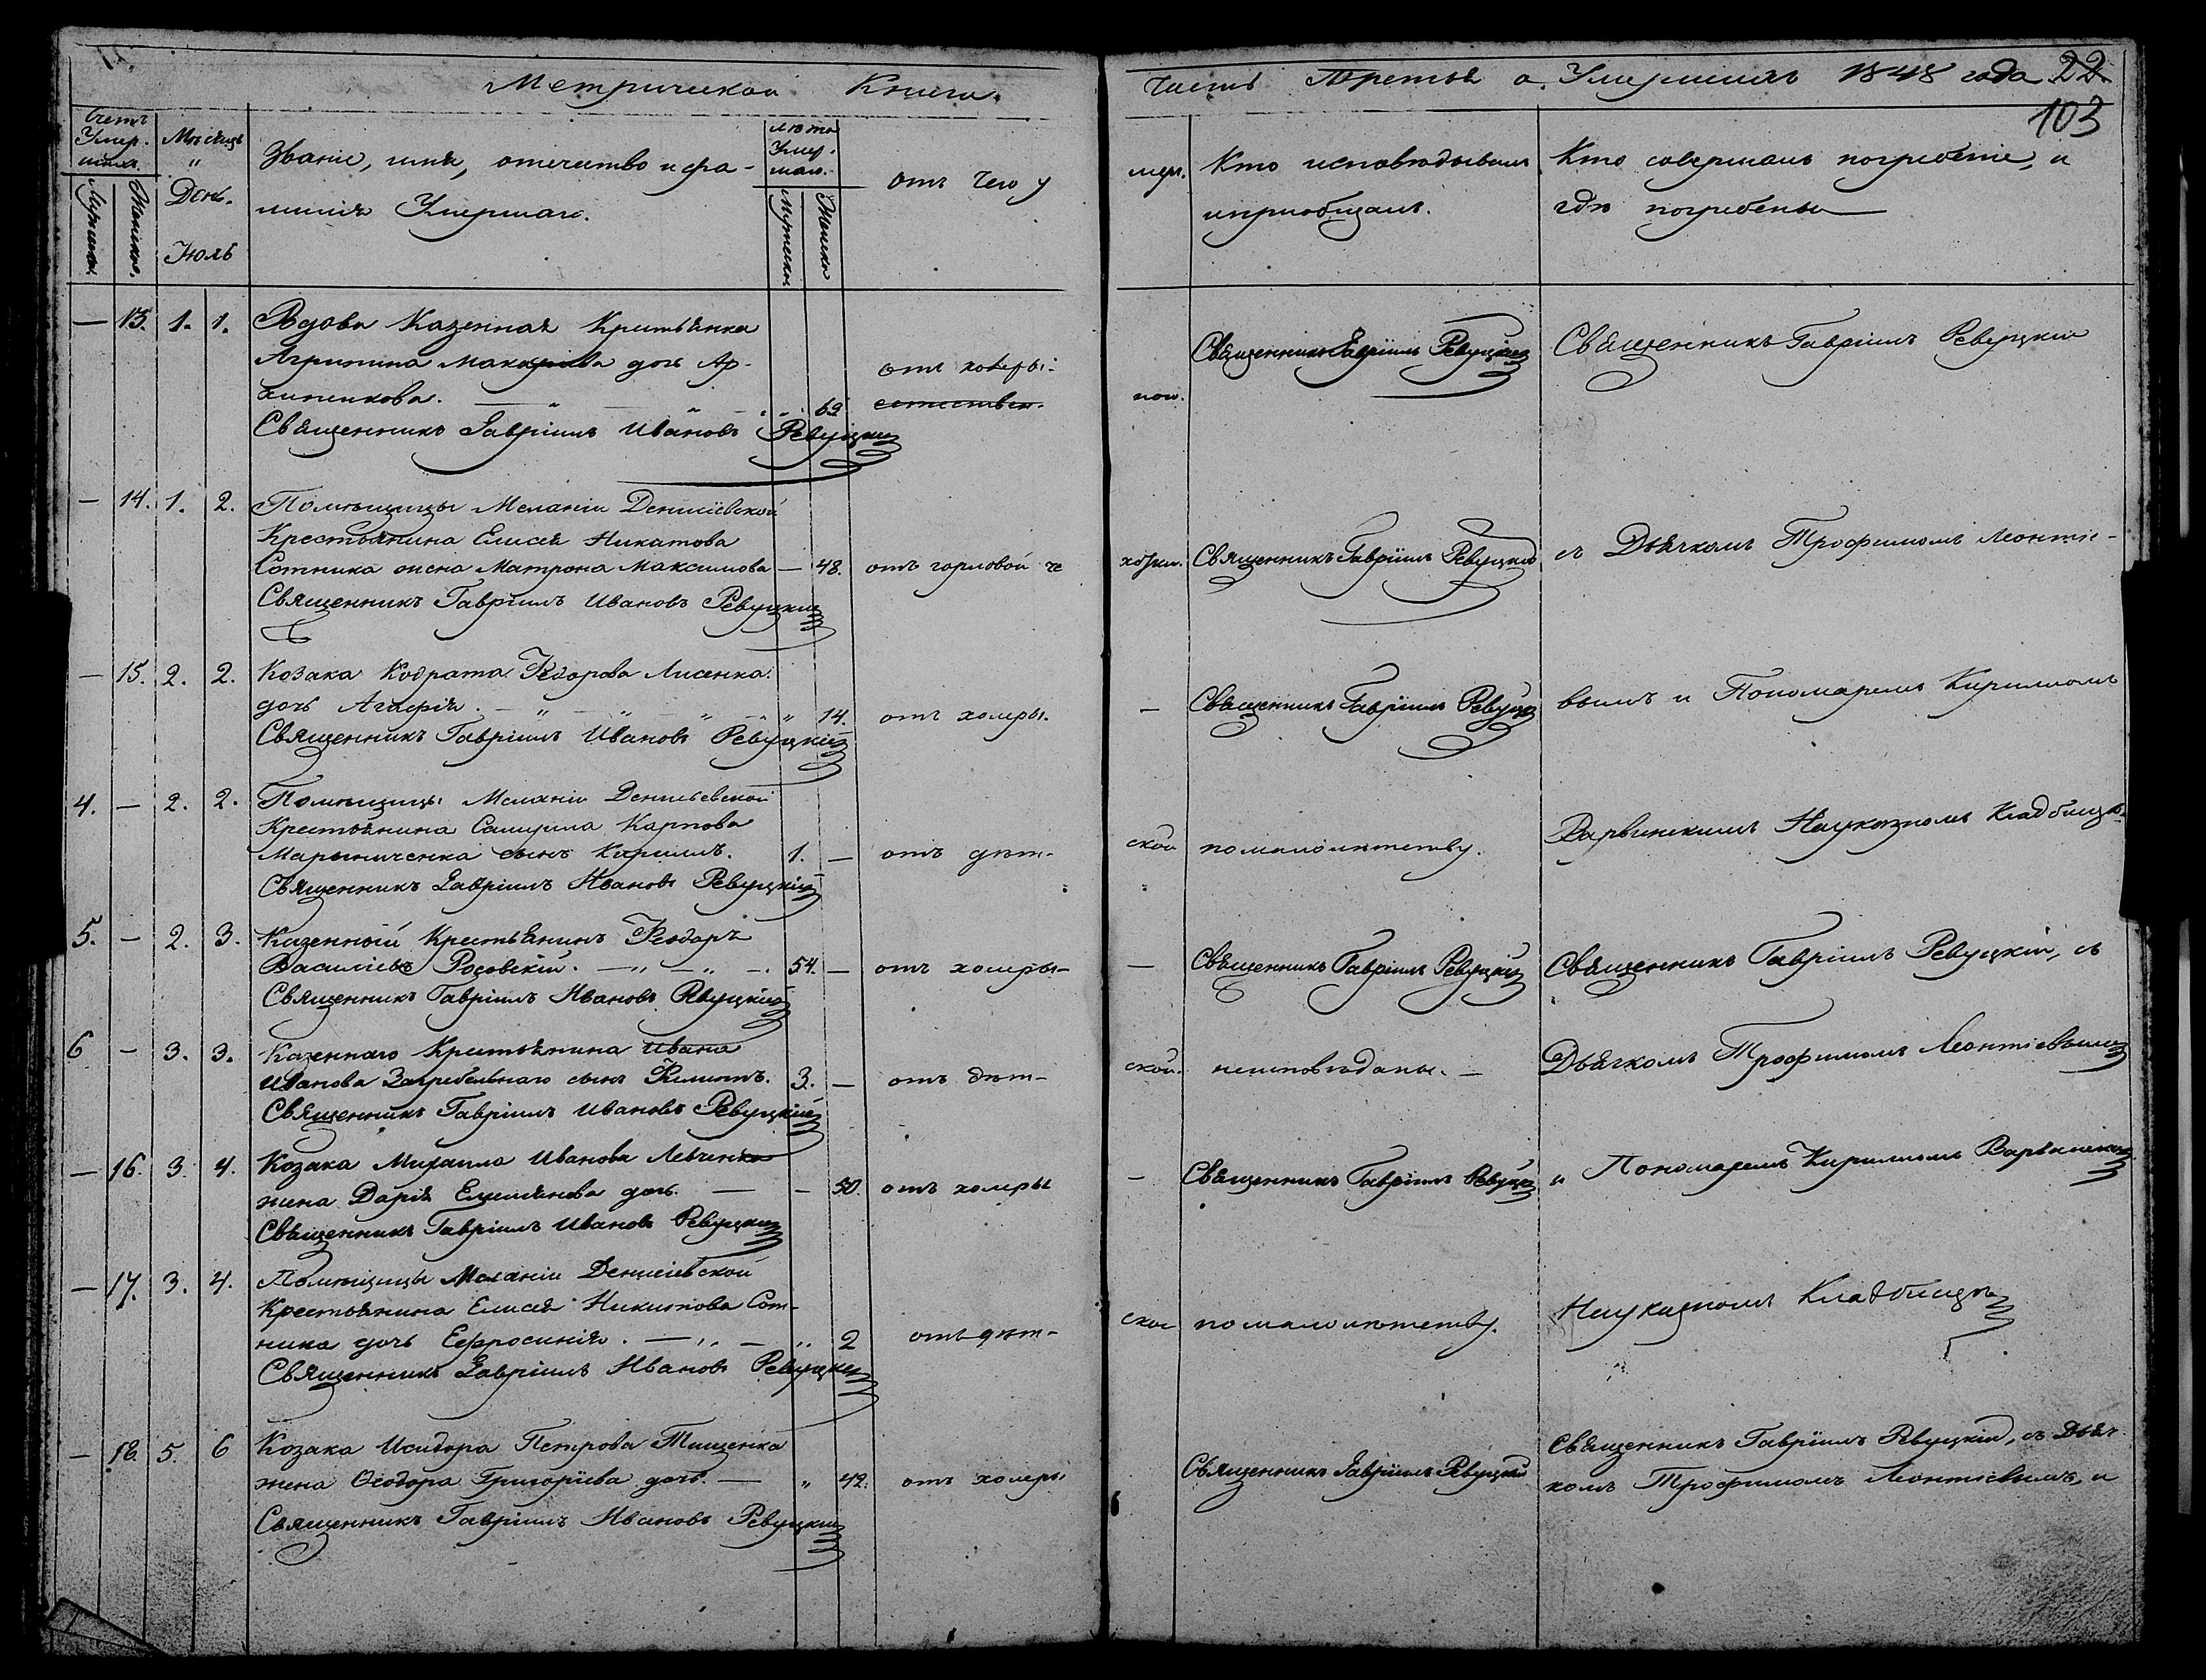 Метрической Книги.
Счетъ Умер-шихъ.
Мужеска.
Женска.
Мѣсяцъ
"
День.
Июль
Званіе, имя, отечество и фа-
милія Умершаго.
лѣта Умер-шаго.
Мужеска
Женска
отъ чего у
— 13. 1. 1. Вдова Казенная Крестьянка
Агрипина Макарова дочь Ар-
хипенкова. 69 отъ холеры
естествен.
Священникъ Гавріилъ Ивановъ Ревуцкій
— 14. 1. 2. Помѣщицы Меланіи Денисіевской
Крестьянина Елисея Никитова
Сотника жена Матрона Максимова — 48. отъ горловой че
Священникъ Гавріилъ Ивановъ Ревуцкій
— 15. 2. 2. Козака Кодрата Ѳедорова Лисенка
дочь Агафія. — " — " — " 14. отъ холеры.
Священникъ Гавріилъ Ивановъ Ревуцкій
4. — 2. 2. Помѣщицы Меланіи Денисьевской
Крестьянина Самуила Карпова
Марыниченка сынъ Кирилъ. 1. — отъ дѣт-
Священникъ Гавріилъ Ивановъ Ревуцкій
5. — 2. 3. Казенный Крестьянинъ Ѳеодоръ
Василіевъ Росовскій. — " — " — 54. — отъ холеры —
Священникъ Гавріилъ Ивановъ Ревуцкій
6 — 3. 3. Казеннаго Крестьянина Ивана
Иванова Загребельнаго сынъ Филиппъ. 3. — отъ дѣт-
Священникъ Гавріилъ Ивановъ Ревуцкій
— 16. 3. 4. Козака Михаила Иванова Левченка
жена Дарія Емеліянова дочь. — — 50. отъ холеры
Священникъ Гавріилъ Ивановъ Ревуцкій
— 17. 3. 4. Помѣщицы Меланіи Денисіевской
Крестьянина Елисея Никитова Сот-
ника дочь Ефросинія. — " — " 2 отъ дѣт-
Священникъ Гавріилъ Ивановъ Ревуцкій
— 18. 5. 6 Козака Исидора Петрова Тищенка
жена Ѳеодора Григоріева дочь. — " 42. отъ холеры
Священникъ Гавріилъ Ивановъ Ревуцкій
часть Третья о Умершихъ 1848 года 22.
103
меръ.
Кто исповѣдывалъ
и пріобщалъ.
Кто совершалъ погребеніе, и
гдѣ погребены
Священникъ Гавріилъ Ревуцкій Священникъ Гавріилъ Ревуцкій
ной.
хотки. Священникъ Гавріилъ Ревуцкій съ Дьячкомъ Трофимомъ Леонтіе-
— Священникъ Гавріилъ Ревуцкій вымъ и Пономаремъ Кириломъ
ской по малолѣтству. Варвинскимъ На указномъ Кладбищѣ.
— Священникъ Гавріилъ Ревуцкій Священникъ Гавріилъ Ревуцкій, съ
ской. неисповѣданы. — Дьячкомъ Трофимомъ Леонтіевымъ
— Священникъ Гавріилъ Ревуцкій и Пономаремъ Кириломъ Варвинскимъ
ской по малолѣтству. На указномъ Кладбищѣ
Священникъ Гавріилъ Ревуцкій Священникъ Гавріилъ Ревуцкій, съ Дьяч-
комъ Трофимомъ Леонтіевымъ, и